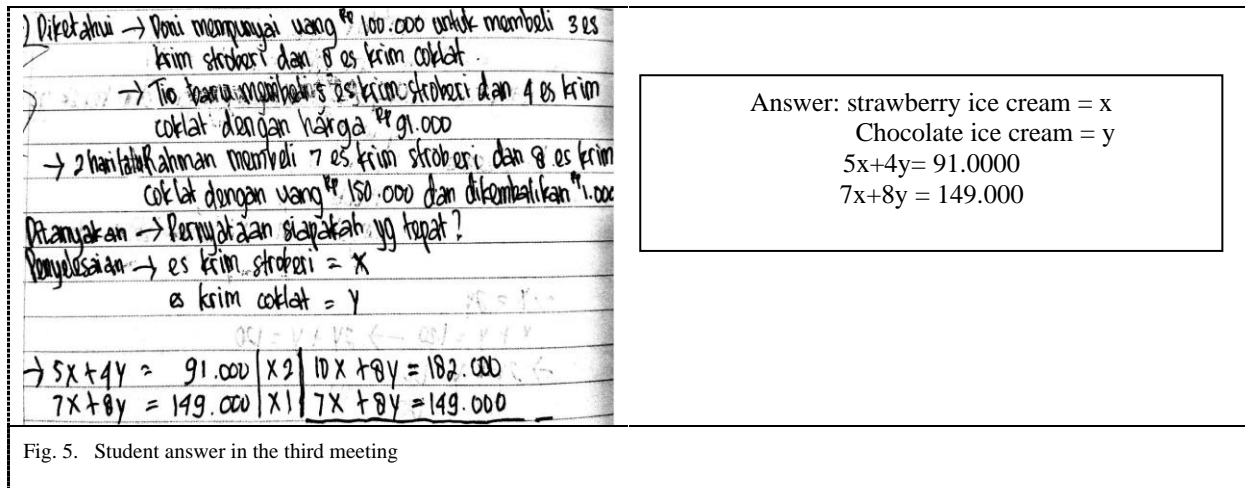 ) Diketahui → Doni mempunyai uang Rp 100.000 untuk membeli 3 es
krim stroberi dan 8 es krim coklat.
→ Tio membeli 5 es krim stroberi dan 4 es krim
coklat dengan harga Rp 91.000
→ 2 hari Rahman membeli 7 es krim stroberi dan 8 es krim
coklat dengan uang Rp 150.000 dan dikembalikan Rp 1.000
Ditanyakan → Pernyataan siapakah yg tepat?
Penyelesaian → es krim stroberi = x
es krim coklat = y
→ 5x+4y = 91.000 | x2 | 10x +8y = 182.000
7x+8y = 149.000 | x1 | 7x +8y =149.000 –
Answer: strawberry ice cream = x
Chocolate ice cream = y
5x+4y= 91.0000
7x+8y = 149.000
Fig. 5. Student answer in the third meeting